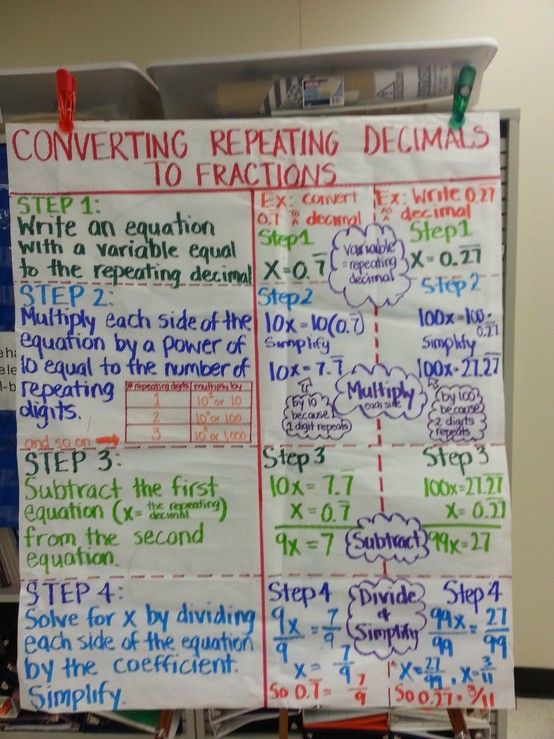 CONVERTING REPEATING DECIMALS
TO FRACTIONS
STEP 1:
Write an equation
with a variable equal
to the repeating decimal
Ex: convert
0.7̅ to a decimal
Step1
X=0.7̅
Ex: Write 0.27
to a decimal
Step1
X=0.2̅7̅
variable
=repeating
decimal
STEP 2:
Multiply each side of the
equation by a power of
10 equal to the number of
repeating
digits.
# repeating digits multiply by
1 10¹ or 10
2 10² or 100
3 10³ or 1,000
and so on
Step2
10x=10(0.7̅)
Simplify
10x=7.7̅
by 10
because
1 digit repeats
Step2
100x=100·
0.2̅7̅
Simplify
100x=27.2̅7̅
by 100
because
2 digits
repeats
Multiply
each side
STEP 3:
Subtract the first
equation (x= the repeating decimal)
from the second
equation.
Step 3
10x=7.7̅
x=0.7̅
9x=7
Step 3
100x=27.2̅7̅
x=0.2̅7̅
99x=27
Subtract
STEP 4:
Solve for x by dividing
each side of the equation
by the coefficient.
Simplify.
Step4
9x/9 = 7/9
x= 7/9
So 0.7̅= 7/9
Step4
99x/99 = 27/99
x=27/99, x=3/11
So 0.2̅7̅=3/11
Divide
&
Simplify